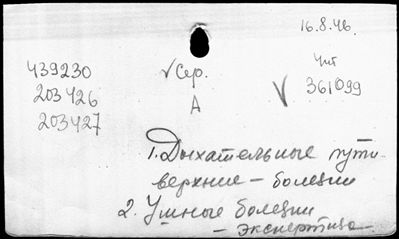 16.8.46.
439230
203426
203427
√ Сер.
А
Чит
√ 361099
1. Дыхательные пути
верхние – болезни
2. Ушные болезни
– экспертиза